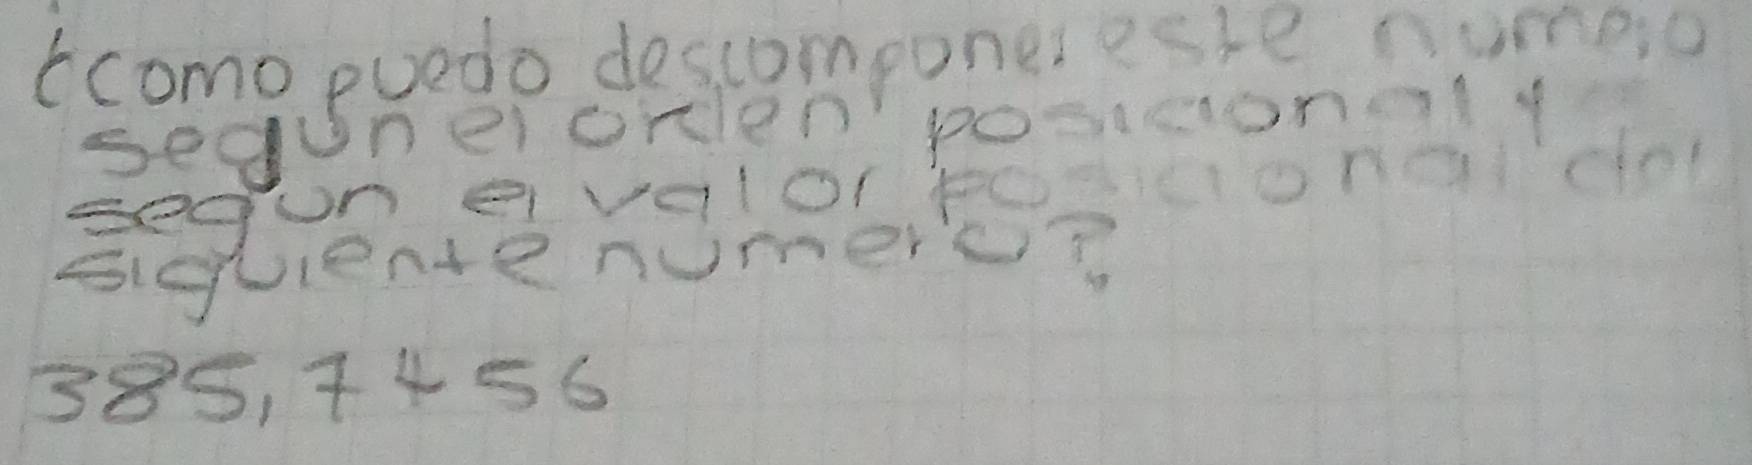 ¿como puedo descomponer este numero
segun el orden posicional y
segun el valor posicional del
siguiente numero?
385,7456